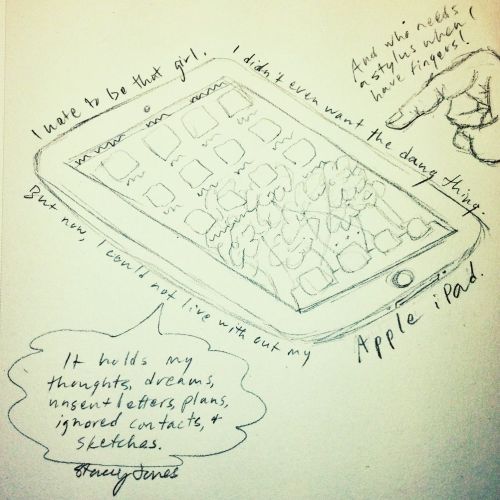 I hate to be that girl.
I didn't even want the dang thing.
But now, I could not live with out my
Apple iPad.
And who needs
a stylus when I
have fingers!
It holds my
thoughts, dreams,
unsent letters, plans,
ignored contacts, +
sketches.
Stacey Jones